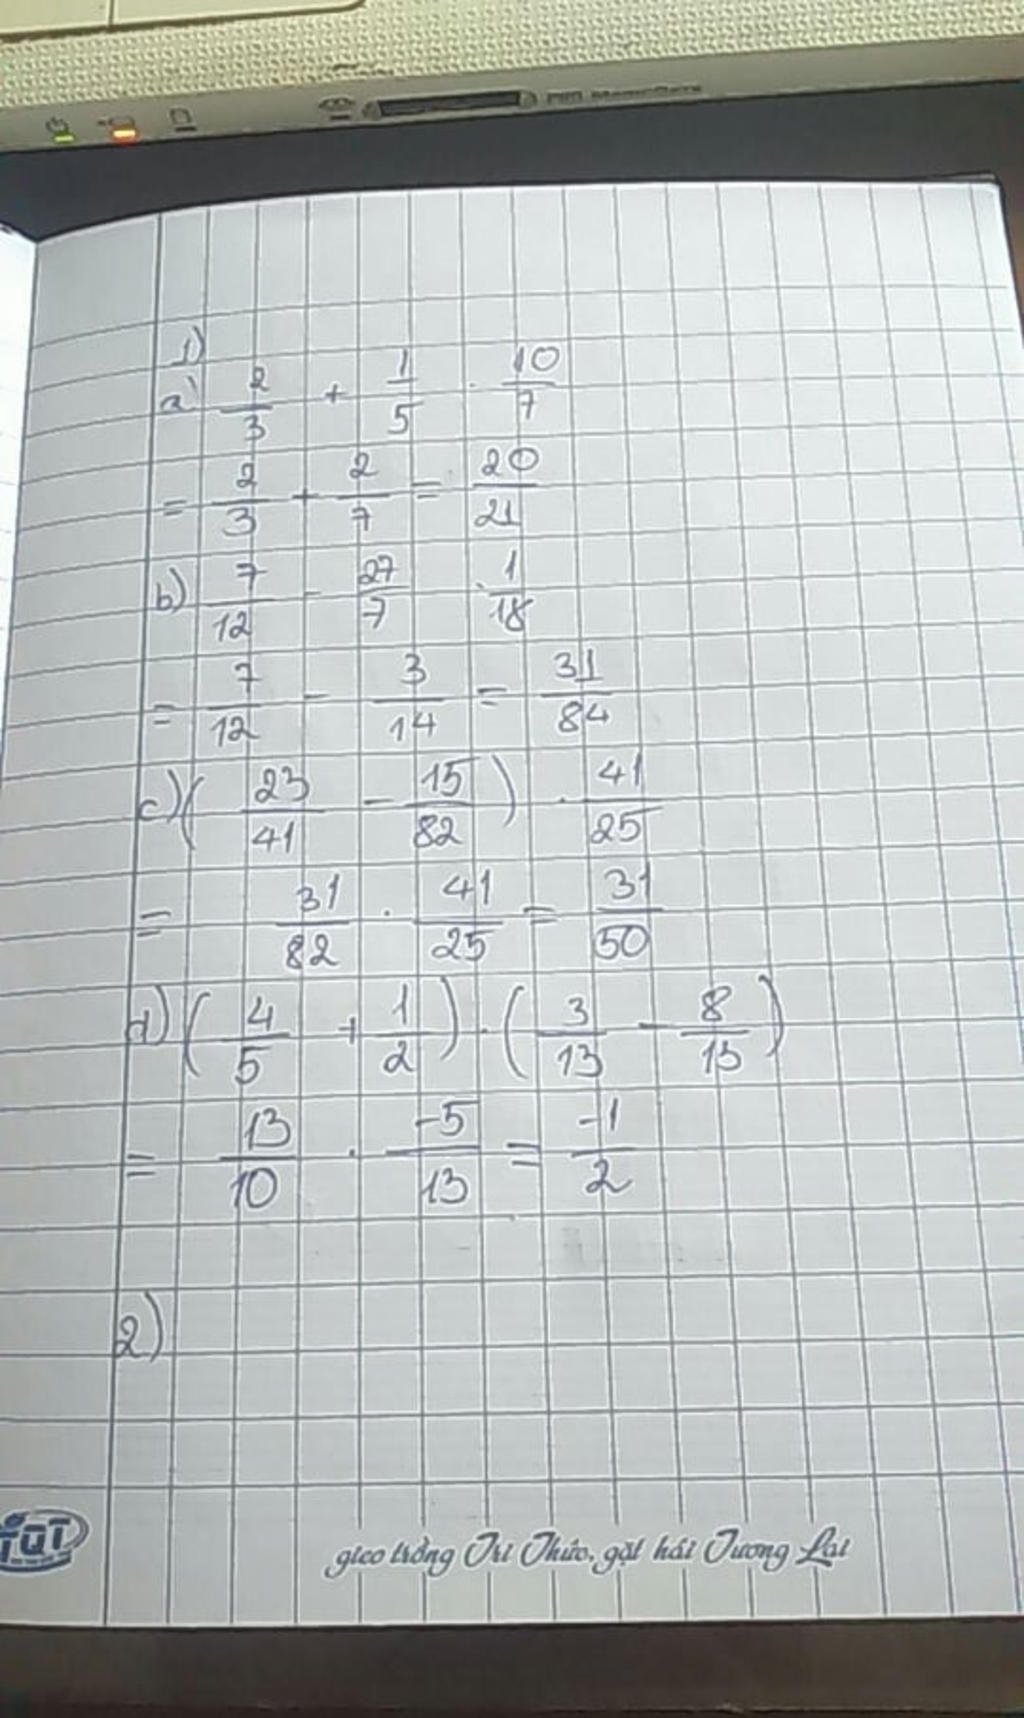 1)
a) 2/3 + 1/5 . 10/7
= 2/3 + 2/7 = 20/21
b) 7/12 - 27/7 . 1/18
= 7/12 - 3/14 = 31/84
c) ( 23/41 - 15/82 ) . 41/25
= 31/82 . 41/25 = 31/50
d) ( 4/5 + 1/2 ) . ( 3/13 - 8/13 )
= 13/10 . -5/13 = -1/2
2)
TQT
gieo trồng Tri Thức, gặt hái Tương Lai